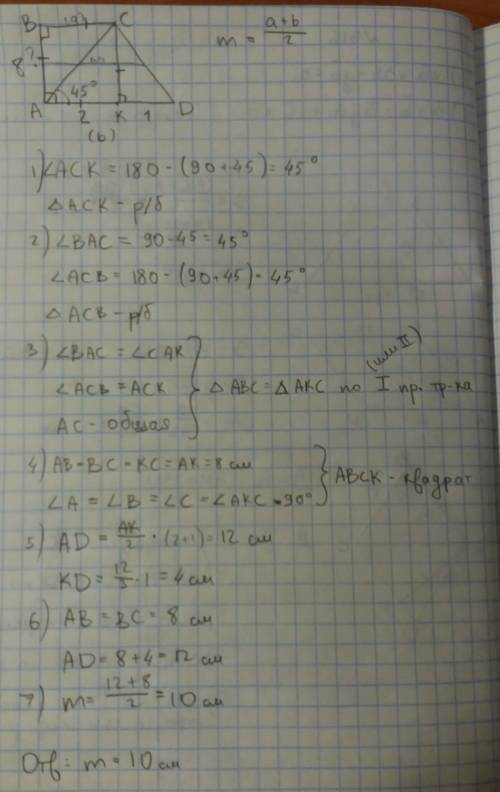 B (a) C
m = a+b/2
8 ?
m
45°
A 2 K 1 D
(b)
1) ∠ACK = 180 - (90+45) = 45°
△ACK - р/б
2) ∠BAC = 90-45 = 45°
∠ACB = 180 - (90+45) = 45°
△ACB - р/б
3) ∠BAC = ∠CAK
∠ACB = ACK
AC - общая
} △ABC = △AKC по I пр. тр-ка
(или II)
4) AB = BC = KC = AK = 8 см
∠A = ∠B = ∠C = ∠AKC = 90°
} ABCK - квадрат
5) AD = AK/2 · (2+1) = 12 см
KD = 12/3 · 1 = 4 см
6) AB = BC = 8 см
AD = 8+4 = 12 см
7) m = 12+8/2 = 10 см
Отв: m = 10 см